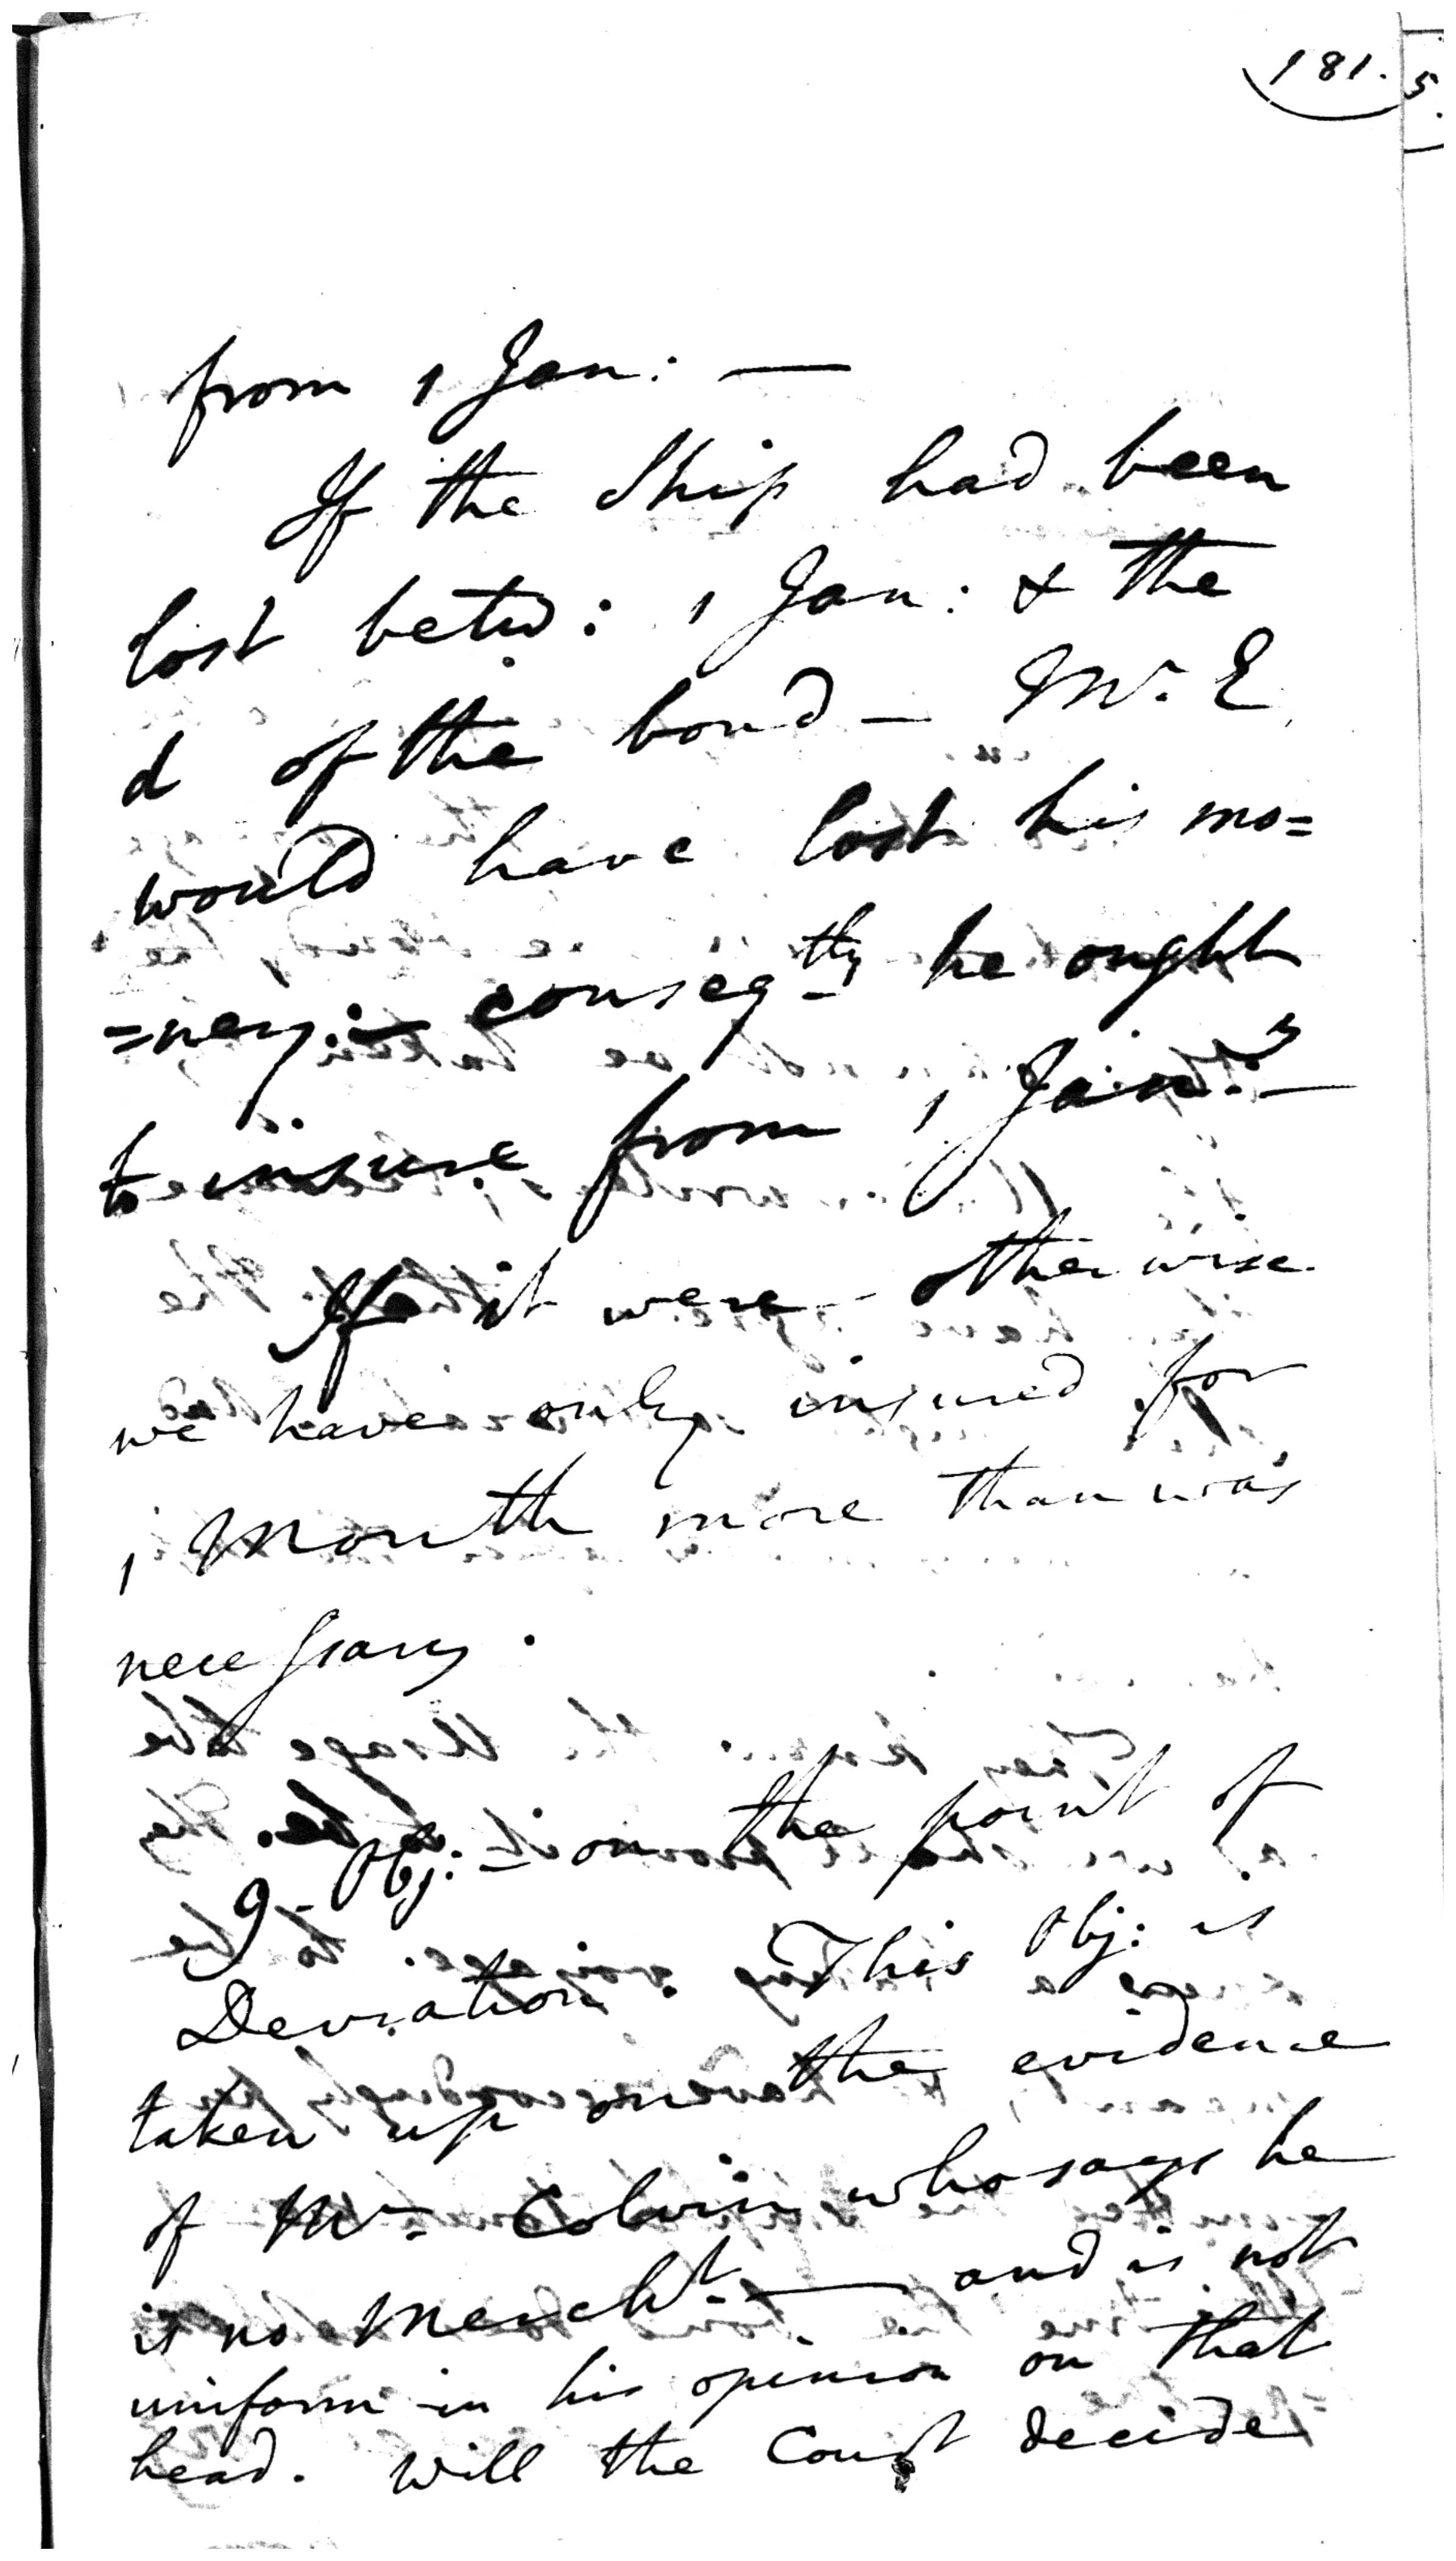 181. 5.
from 1 Jan: —
If the Ship had been
lost betw: 1 Jan: & the
d of the bond — Mr. E
would have lost his mo=
=ney: — conseqtly he ought
to insure from 1 Jany —
If it were otherwise
we have only insured for
1 Month more than was
necessary.
9. Obj: — on the point of
Deviation. This Obj: is
taken up on the evidence
of Mr. Colvin who says he
is no Mercht. — and is not
uniform in his opinion on that
head. Will the Court decide